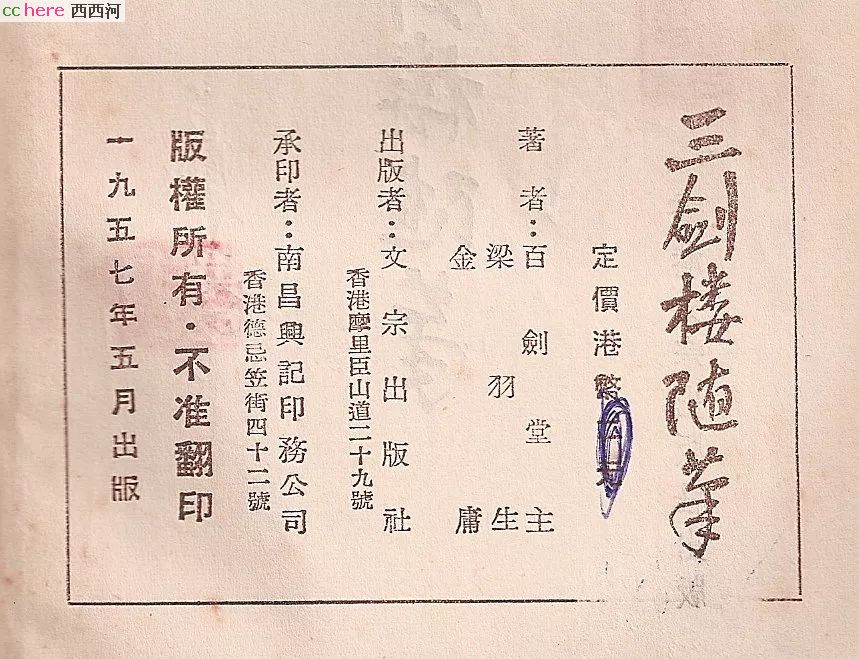 cchere 西西河
三剑楼随笔
定價港幣
著者：百劍堂主
梁羽生
金庸
出版者：文宗出版社
香港摩里臣山道二十九號
承印者：南昌興記印務公司
香港德忌笠街四十二號
版權所有·不准翻印
一九五七年五月出版